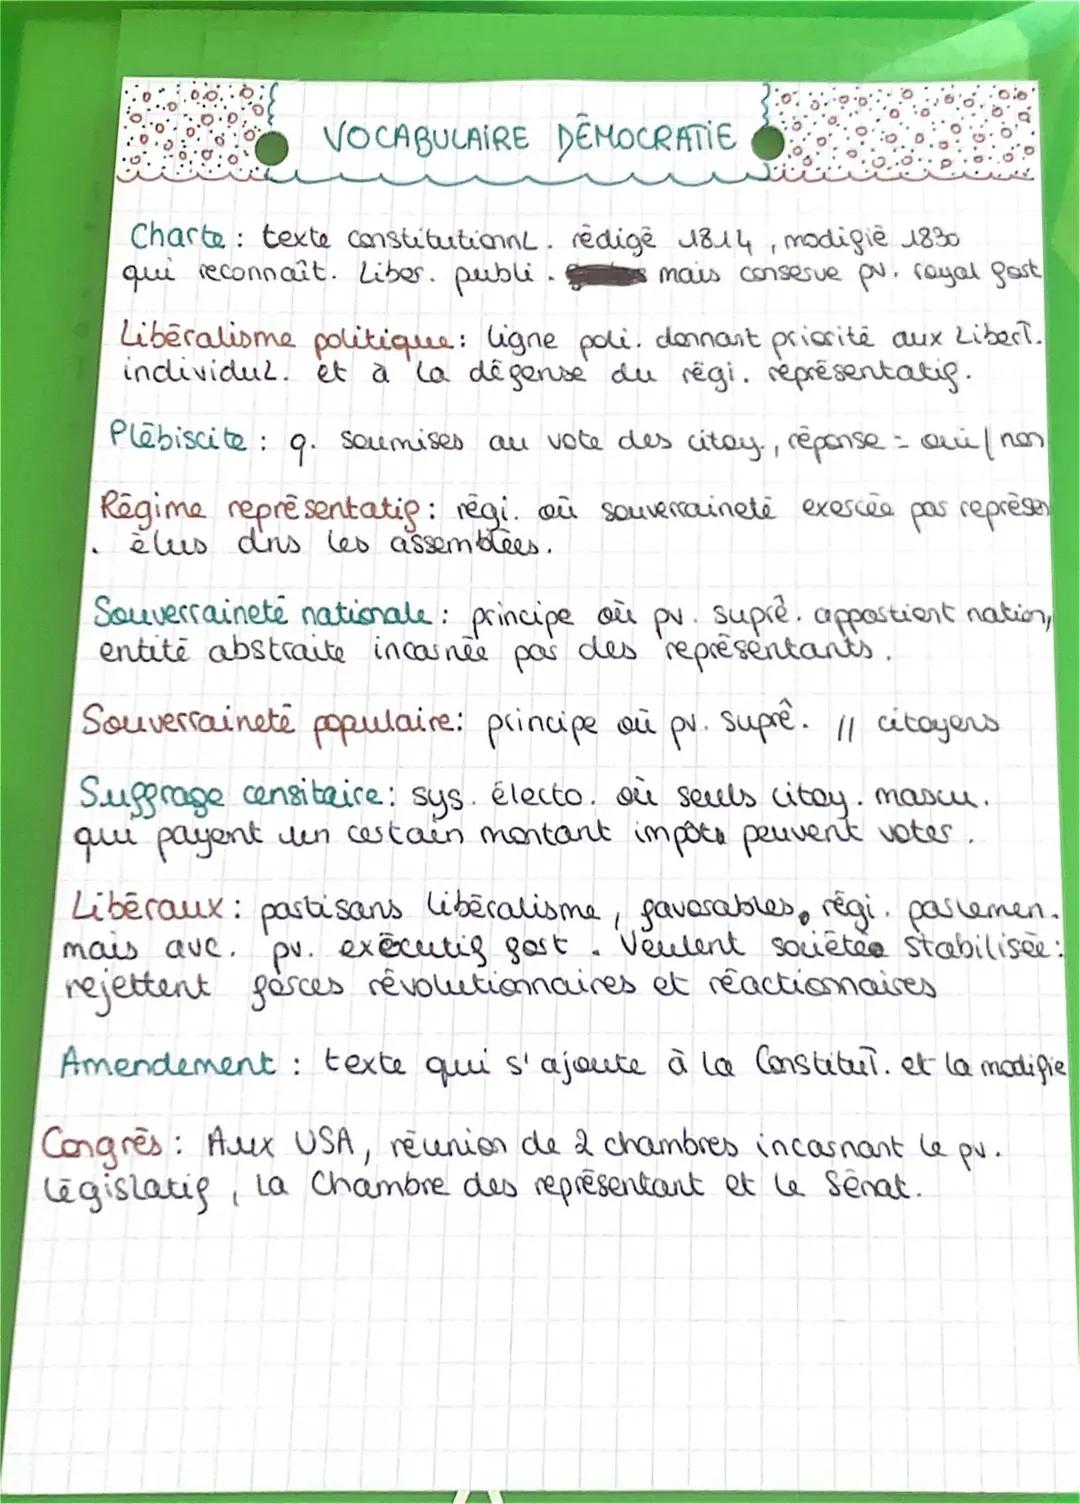 VOCABULAIRE DÉMOCRATIE
Charte : texte constitutionnL. rédigé 1814, modifié 1830
qui reconnaît. Liber. publi. mais conserve pv. royal fort
Libéralisme politique : ligne poli. donnant priorité aux LiberT.
individuL. et à la défense du régi. représentatif.
Plébiscite : q. soumises au vote des citoy., réponse = oui / non
Régime représentatif : régi. où souverraineté exercée par représen
. élus dns les assemblées.
Souverraineté nationale : principe où pv. suprê. appartient nation,
entité abstraite incarnée par des représentants.
Souverraineté populaire : principe où pv. suprê. // citoyens
Suffrage censitaire : sys. électo. où seuls citoy. mascu.
qui payent un certain montant impôts peuvent voter.
Libéraux : partisans libéralisme, favorables, régi. parlemen.
mais avc. pv. exécutif fort. Veulent société stabilisée :
rejettent forces révolutionnaires et réactionnaires
Amendement : texte qui s'ajoute à la ConstituT. et la modifie
Congrès : Aux USA, réunion de 2 chambres incarnant le pv.
législatif, la Chambre des représentant et le Sénat.